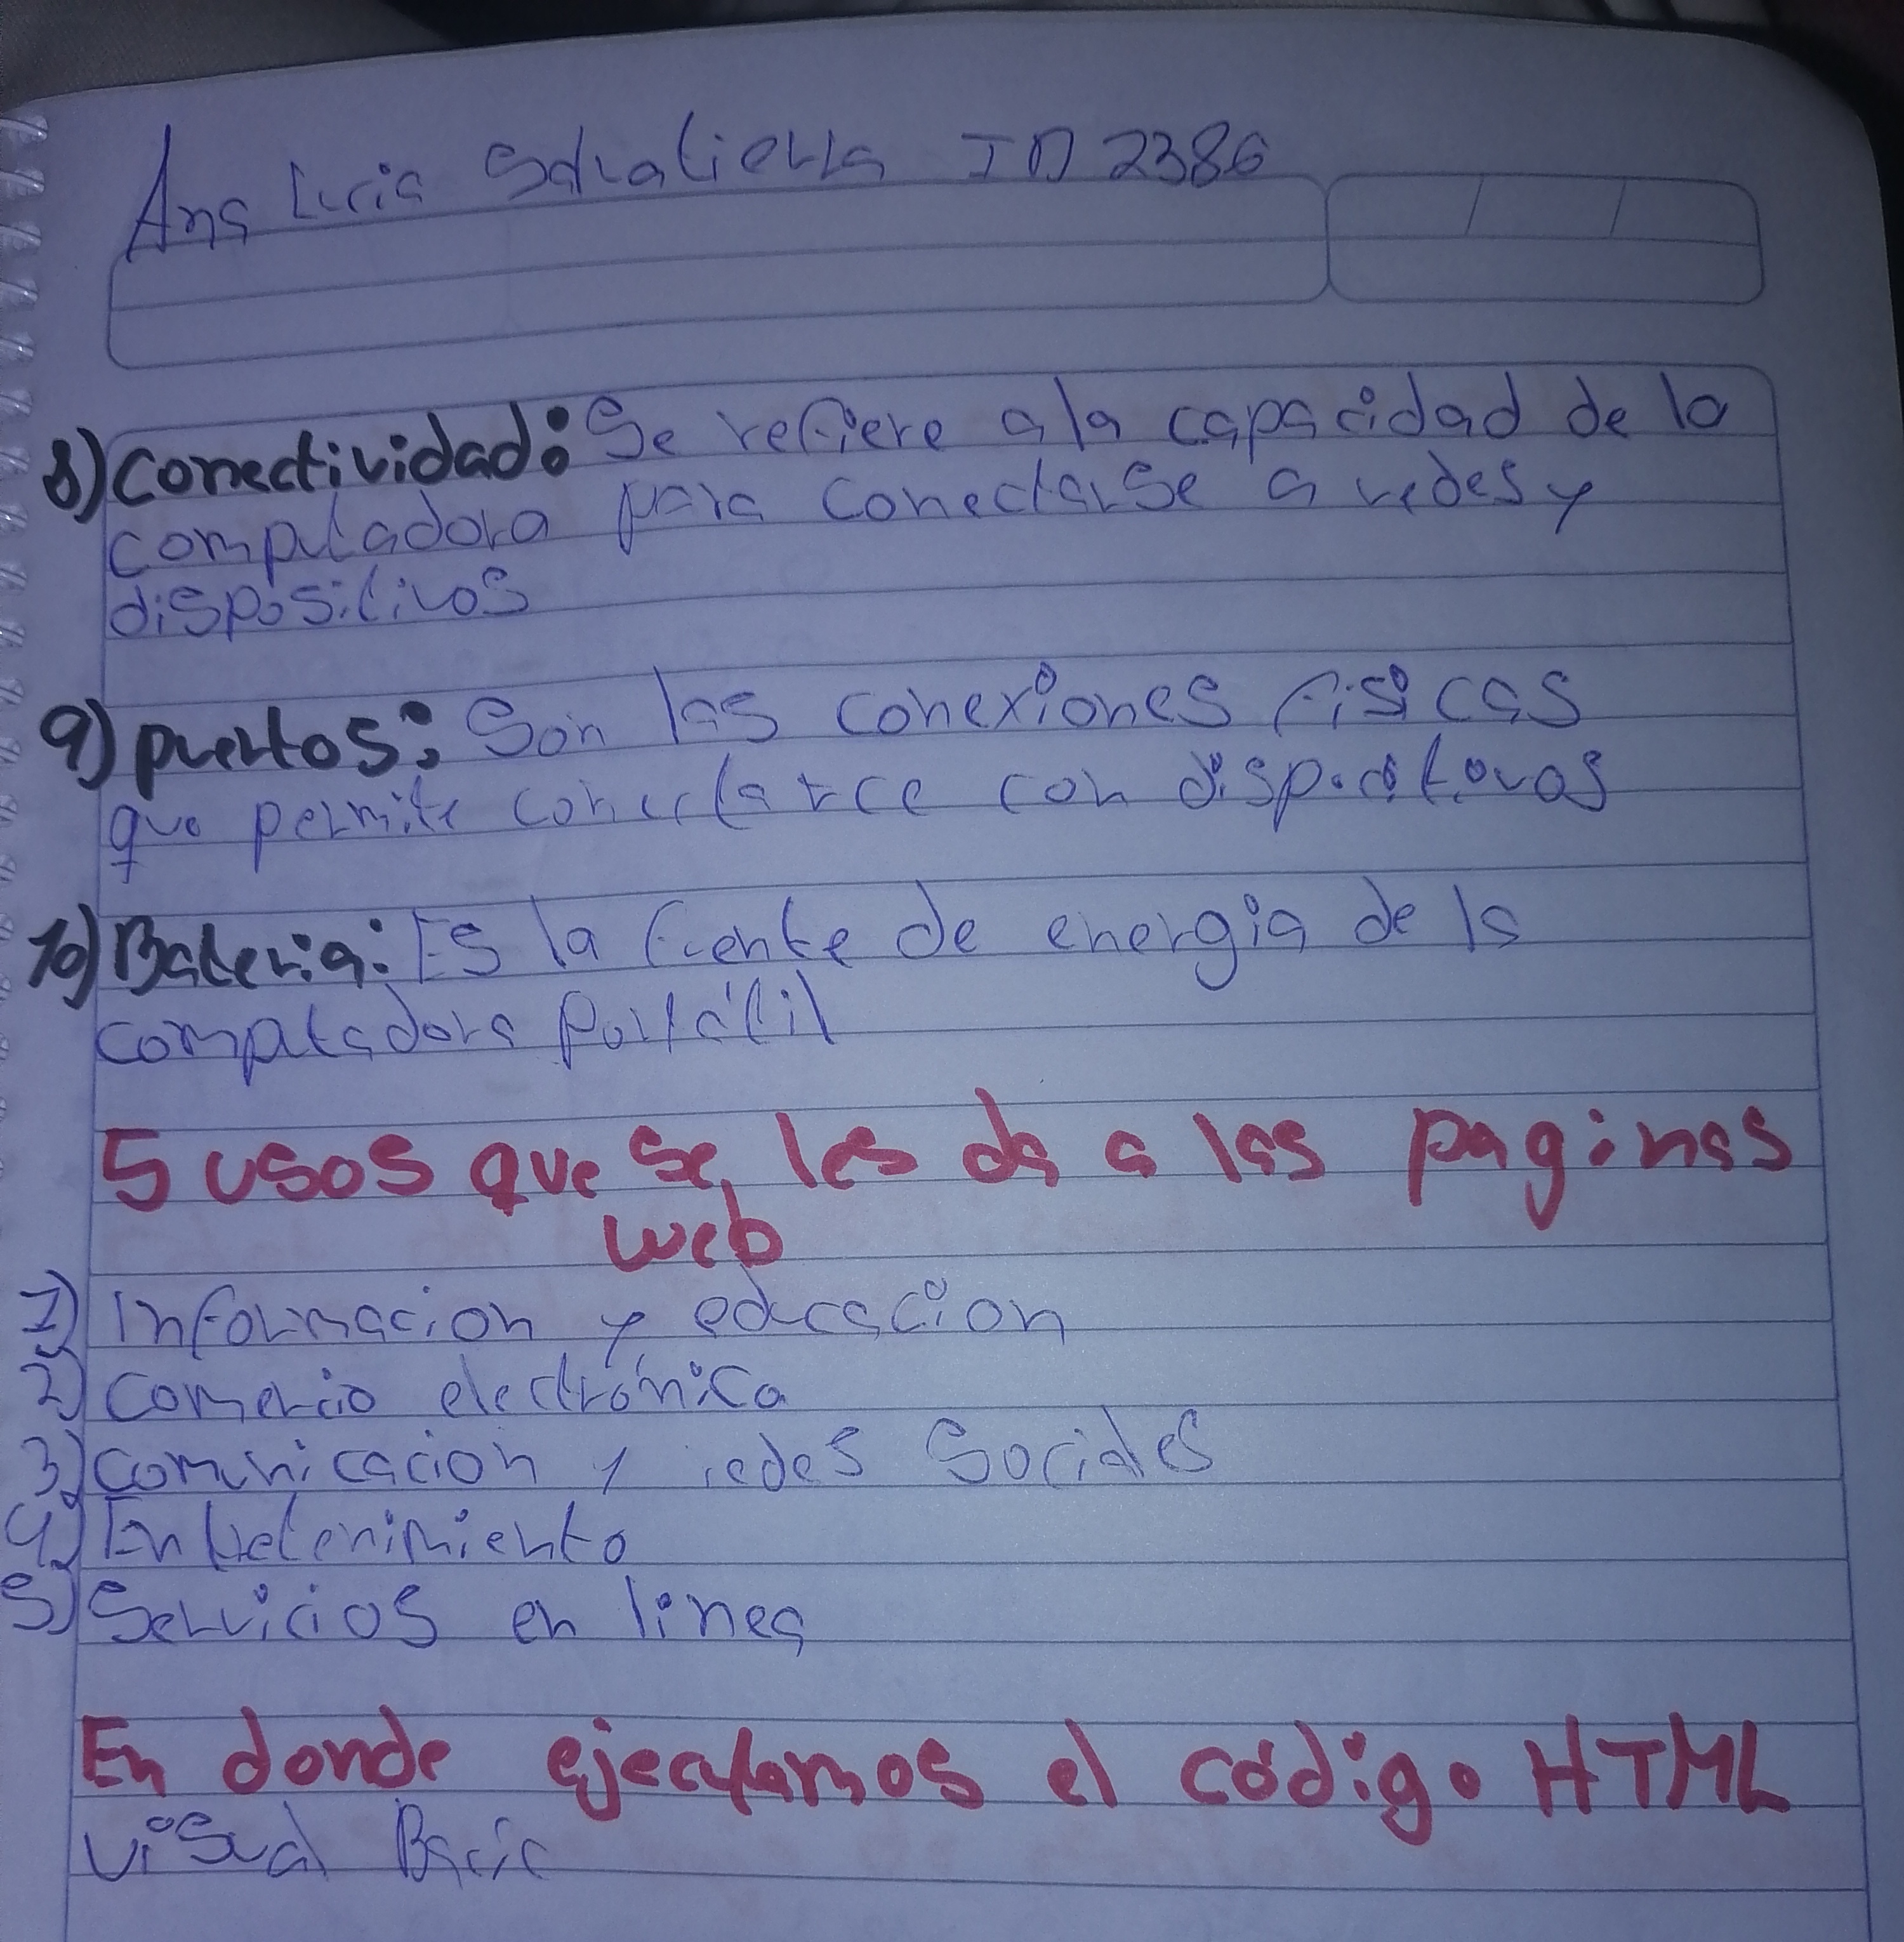 Ana Lucia Salvatierra ID 2386
8) Conectividad: Se refiere a la capacidad de la
computadora para conectarse a redes y
dispositivos
9) puertos: Son las conexiones fisicas
que permite conectarce con dispositovos
10) Bateria: Es la fuente de energia de la
computadora Portátil
5 usos que se les da a las paginas
web
1) Informacion y educacion
2) Comercio electrónica
3) comunicacion y redes Sociales
4) Entretenimiento
5) Servicios en linea
En donde ejecutamos el código HTML
visual Basic